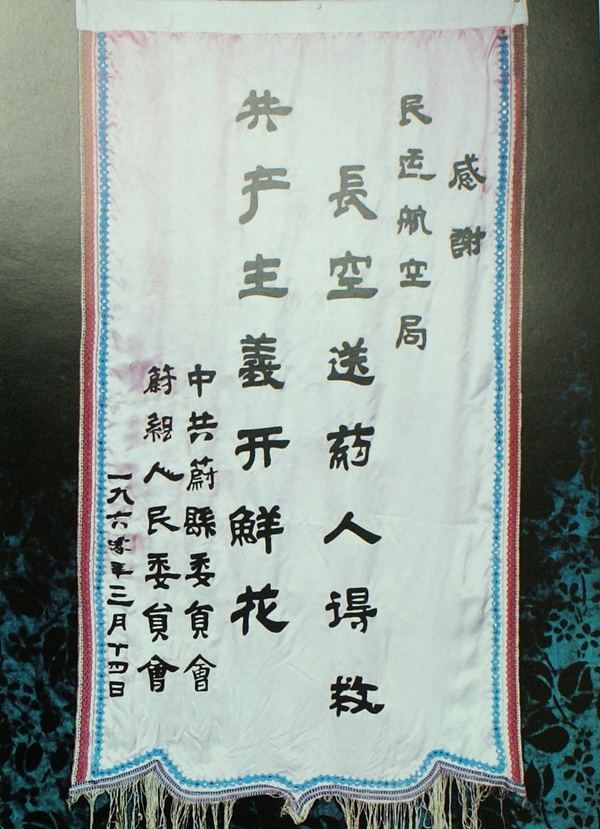 感謝
民运航空局
長空送药人得救
共产主義开鮮花
中共蔚縣委員會
蔚縣人民委員會
一九六零年三月十四日